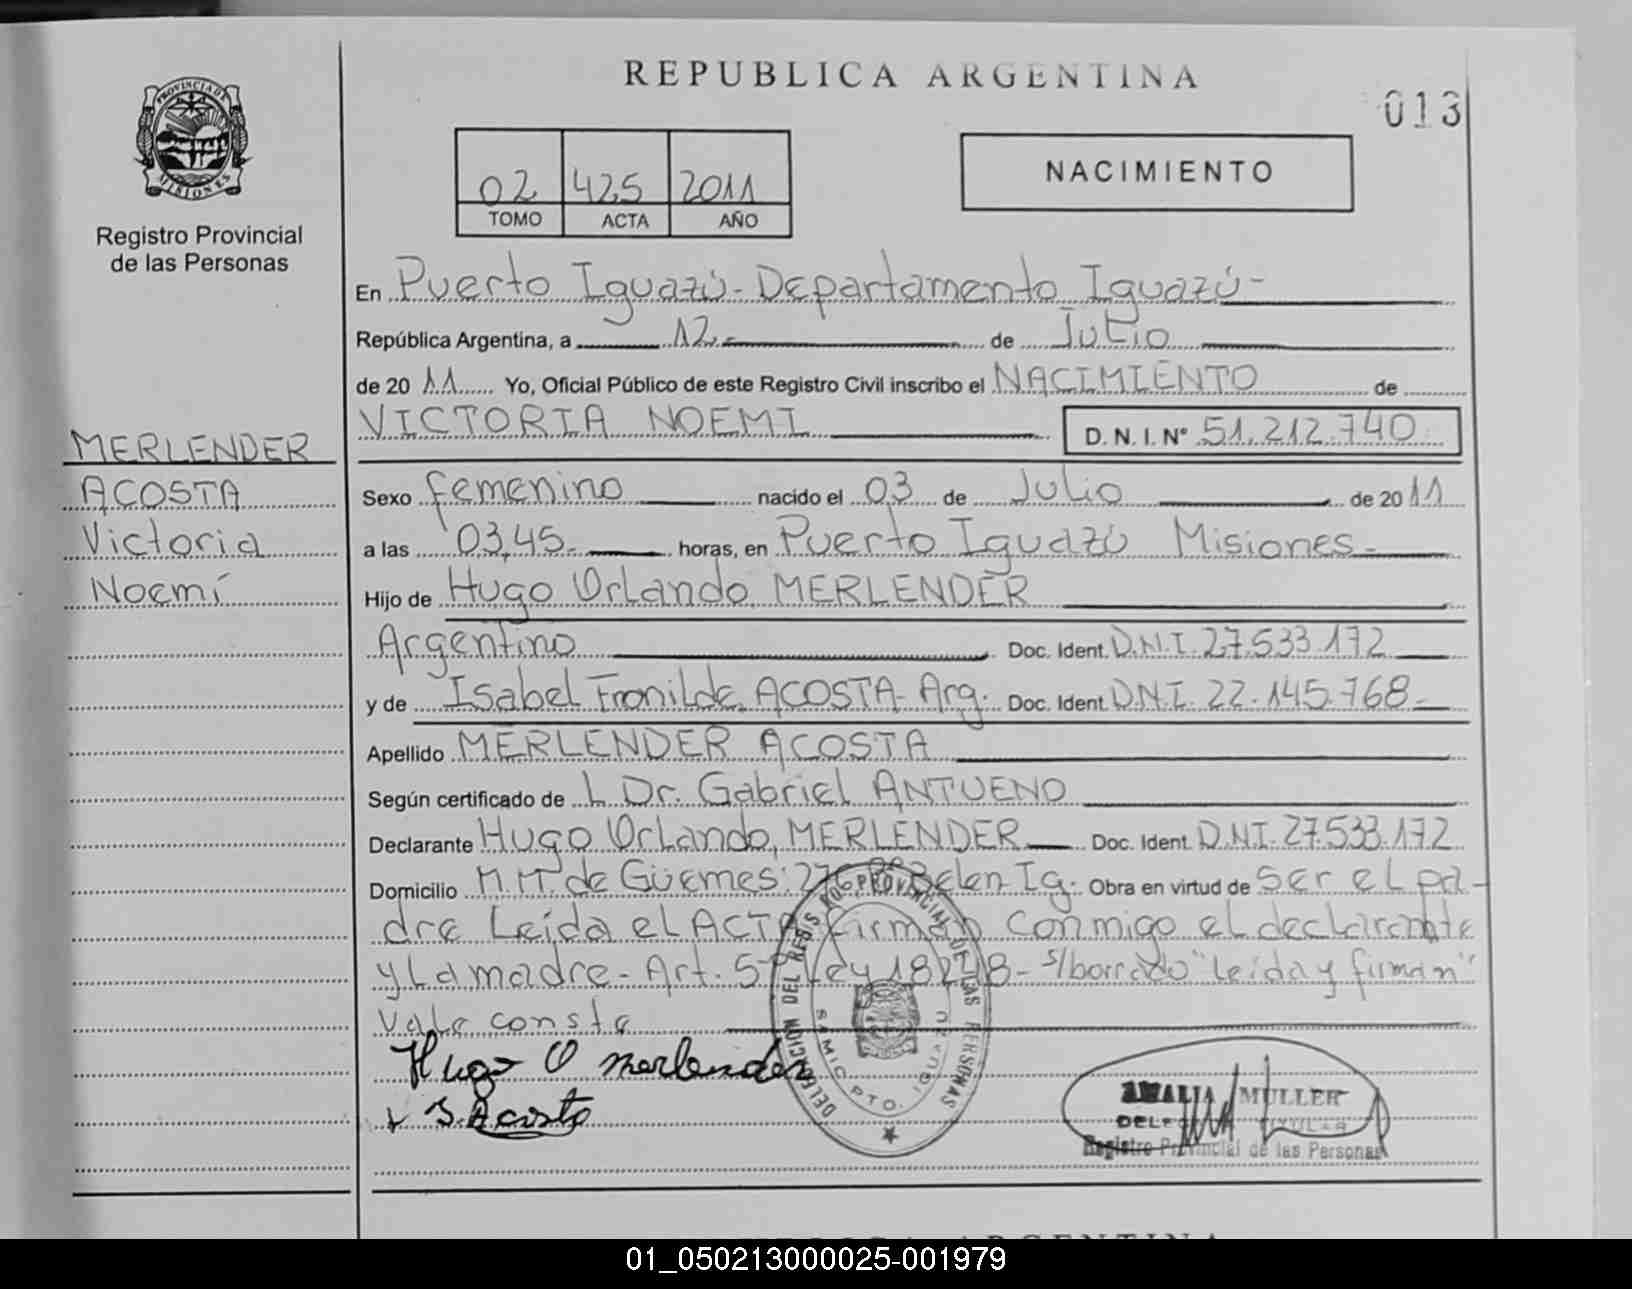 REPUBLICA ARGENTINA
013
PROVINCIA DE MISIONES
Registro Provincial
de las Personas
02 425 2011
TOMO ACTA AÑO
NACIMIENTO
En Puerto Iguazú - Departamento Iguazú -
República Argentina, a 12 de Julio
de 2011 Yo, Oficial Público de este Registro Civil inscribo el NACIMIENTO de
VICTORIA NOEMI D. N. I. N° 51.212.740
MERLENDER
ACOSTA
Victoria
Noemí
Sexo femenino nacido el 03 de Julio de 2011
a las 03,45 horas, en Puerto Iguazú Misiones
Hijo de Hugo Orlando MERLENDER
Argentino Doc. Ident. D.N.I. 27.533.172
y de Isabel ACOSTA - Arg. Doc. Ident. D.N.I. 22.145.768
Apellido MERLENDER ACOSTA
Según certificado de L Dr. Gabriel ANTUENO
Declarante Hugo Orlando MERLENDER Doc. Ident. D.N.I. 27.533.172
Domicilio M.M. de Güemes Belen Ig. Obra en virtud de ser el pa-
dre Leída el ACTA firman conmigo el declarante
y la madre - Art. 5º Ley 18248 - s/borrado "leida y firman"
Vale conste
Hugo O Merlender
I. Acosta
DELEGACION DEL REG. PROVINCIAL DE LAS PERSONAS
PTO. IGUAZU
AMALIA MULLER
Registro Provincial de las Personas
01_050213000025-001979